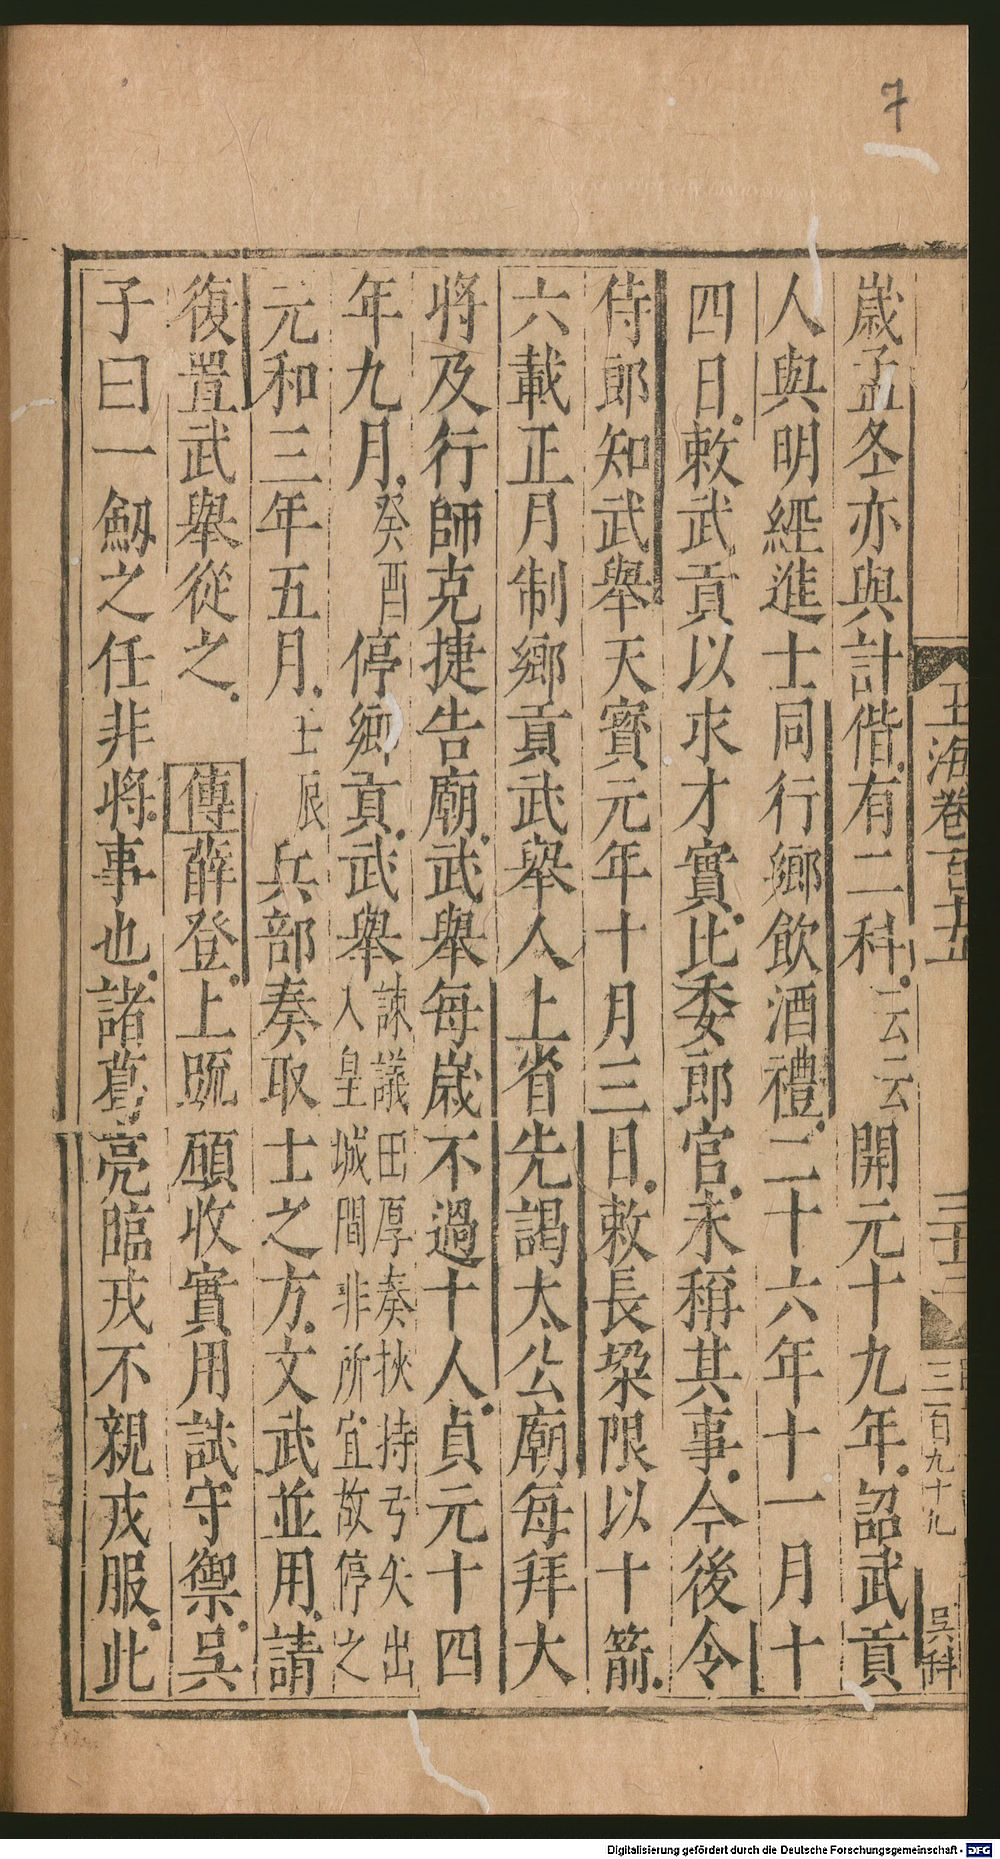 7
歲孟冬亦與計偕有二科云云開元十九年詔武貢
人與明經進士同行鄉飲酒禮二十六年十一月十
四日敕武貢以求才實比委郎官未稱其事今後令
侍郎知武舉天寶元年十月三日敕長垜限以十箭
六載正月制鄉貢武舉人上省先謁太公廟每拜大
將及行師克捷告廟武舉每歲不過十人貞元十四
年九月癸酉停鄉貢武舉諫議田厚奏挾持弓矢出
入皇城間非所宜故停之
元和三年五月壬辰兵部奏取士之方文武並用請
復置武舉從之 傳薛登上疏願收實用試守禦吳
子曰一劒之任非將事也諸葛亮臨戎不親戎服此
玉海卷百十五
三百九十九
吳科
Digitalisierung gefördert durch die Deutsche Forschungsgemeinschaft - DFG